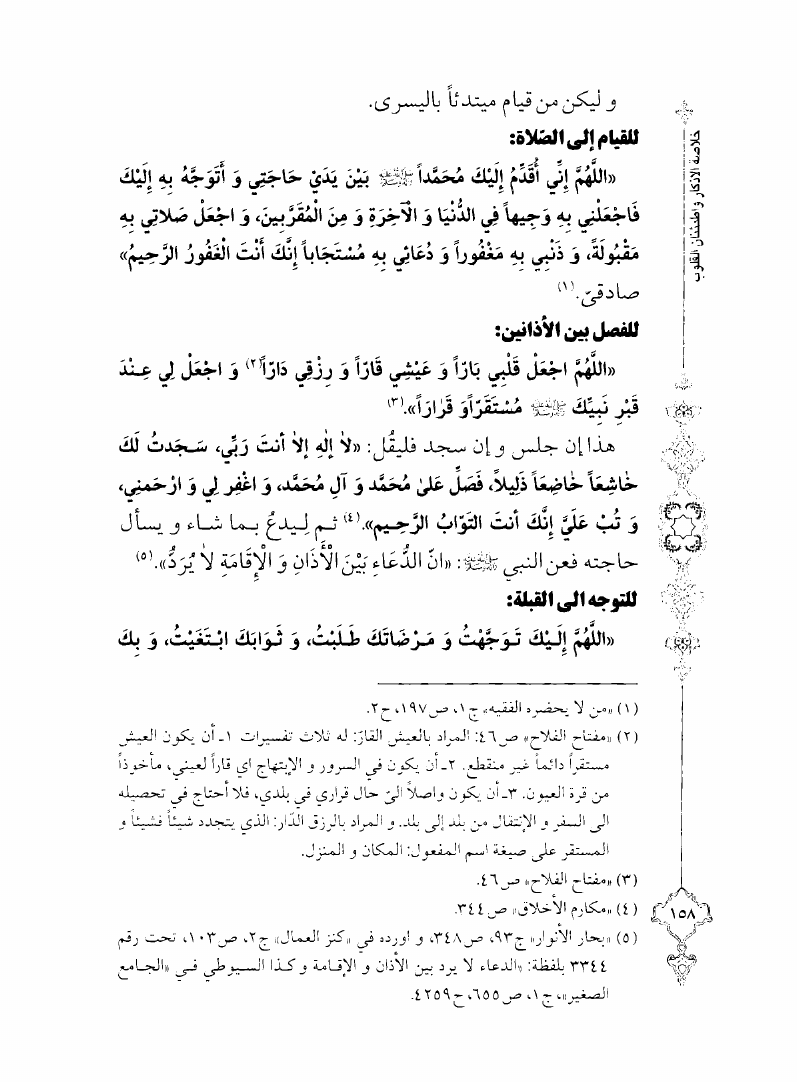 و ليكن من قيام مبتدئاً باليسرى.
للقيام إلى الصّلاة:
«اللَّهُمَّ إِنِّي أُقَدِّمُ إِلَيْكَ مُحَمَّداً ﷺ بَيْنَ يَدَيْ حَاجَتِي وَ أَتَوَجَّهُ بِهِ إِلَيْكَ
فَاجْعَلْنِي بِهِ وَجِيهاً فِي الدُّنْيَا وَ الْآخِرَةِ وَ مِنَ الْمُقَرَّبِينَ، وَ اجْعَلْ صَلاتِي بِهِ
مَقْبُولَةً، وَ ذَنْبِي بِهِ مَغْفُوراً وَ دُعَائِي بِهِ مُسْتَجَاباً إِنَّكَ أَنْتَ الْغَفُورُ الرَّحِيمُ»
صادقيّ.(١)
للفصل بين الأذانين:
«اللَّهُمَّ اجْعَلْ قَلْبِي بَارّاً وَ عَيْشِي قَارّاً وَ رِزْقِي دَارّاً(٢) وَ اجْعَلْ لِي عِنْدَ
قَبْرِ نَبِيِّكَ ﷺ مُسْتَقَرّاً وَ قَرَاراً».(٣)
هذا إن جلس و إن سجد فليقُل: «لاٰ إلٰهِ إلاٰ أنتَ رَبِّي، سَجَدتُ لَكَ
خٰاشِعَاً خٰاضِعَاً ذَلِيلاً، فَصَلِّ عَلىٰ مُحَمَّد وَ آلِ مُحَمَّد، وَ اغْفِر لِي وَ ارْحَمنِي،
وَ تُبْ عَلَيَّ إنَّكَ أنتَ التَوّابُ الرَّحِيم».(٤) ثم لِيدعُ بما شاء و يسأل
حاجته فعن النبي ﷺ: «انّ الدُّعَاءِ بَيْنَ الْأَذَانِ وَ الْإِقَامَةِ لاٰ يُرَدُّ».(٥)
للتوجه الى القبلة:
«اللَّهُمَّ إِلَيْكَ تَوَجَّهْتُ وَ مَرْضَاتَكَ طَلَبْتُ، وَ ثَوَابَكَ ابْتَغَيْتُ، وَ بِكَ
(١) «من لا يحضره الفقيه» ج١، ص١٩٧، ح٢.
(٢) «مفتاح الفلاح» ص٤٦: المراد بالعيش القارّ: له ثلاث تفسيرات ١ـ أن يكون العيش
مستقراً دائماً غير منقطع. ٢ـ أن يكون في السرور و الإبتهاج اي قاراً لعيني، مأخوذاً
من قرة العيون. ٣ـ أن يكون واصلاً اليّ حال قراري في بلدي، فلا أحتاج في تحصيله
الى السفر و الإنتقال من بلد إلى بلد. و المراد بالرزق الدّار: الذي يتجدد شيئاً فشيئاً و
المستقر على صيغة اسم المفعول: المكان و المنزل.
(٣) «مفتاح الفلاح» ص٤٦.
(٤) «مكارم الأخلاق» ص٣٤٤.
(٥) «بحار الأنوار» ج٩٣، ص٣٤٨، و اورده في «كنز العمال» ج٢، ص١٠٣، تحت رقم
٣٣٤٤ بلفظة: «الدعاء لا يرد بين الأذان و الإقامة و كذا السيوطي في «الجامع
الصغير»، ج١، ص٦٥٥، ح٤٢٥٩.
خلاصة الاذكار و اطمئنان القلوب
١٥٨